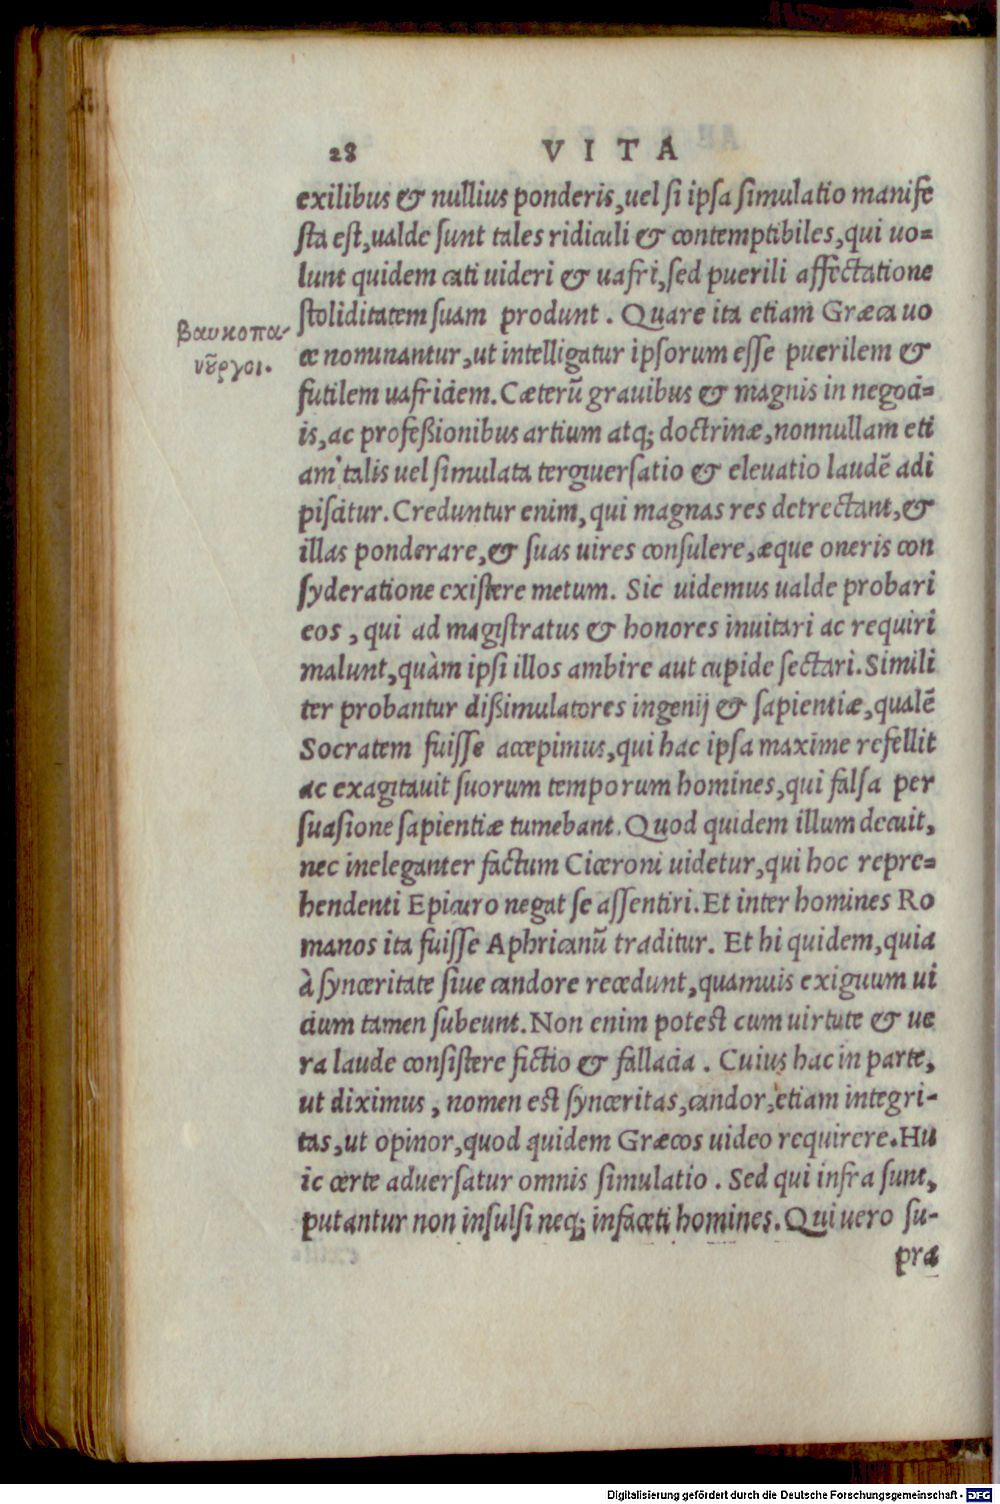 28 VITA
exilibus & nullius ponderis, uel si ipsa simulatio manife
sta est, ualde sunt tales ridiculi & contemptibiles, qui uo=
lunt quidem cati uideri & uafri, sed puerili affectatione
stoliditatem suam produnt. Quare ita etiam Græca uo
βαυκοπα-
ce nominantur, ut intelligatur ipsorum esse puerilem &
νȣ̃ργοι.
futilem uafriciem. Cæterũ grauibus & magnis in negoci=
is, ac profeßionibus artium atq; doctrinæ, nonnullam eti
am talis uel simulata tergiuersatio & eleuatio laudẽ adi
piscitur. Creduntur enim, qui magnas res detrectant, &
illas ponderare, & suas uires consulere, æque oneris con
syderatione existere metum. Sic uidemus ualde probari
eos, qui ad magistratus & honores inuitari ac requiri
malunt, quàm ipsi illos ambire aut cupide sectari. Simili
ter probantur dißimulatores ingenij & sapientiæ, qualẽ
Socratem fuisse accepimus, qui hac ipsa maxime refellit
ac exagitauit suorum temporum homines, qui falsa per
suasione sapientiæ tumebant. Quod quidem illum decuit,
nec ineleganter factum Ciceroni uidetur, qui hoc repre=
hendenti Epicuro negat se assentiri. Et inter homines Ro
manos ita fuisse Aphricanũ traditur. Et hi quidem, quia
à synceritate siue candore recedunt, quamuis exiguum ui
cium tamen subeunt. Non enim potest cum uirtute & ue
ra laude consistere fictio & fallacia. Cuius hac in parte,
ut diximus, nomen est synceritas, candor, etiam integri-
tas, ut opinor, quod quidem Græcos uideo requirere. Hu
ic certe aduersatur omnis simulatio. Sed qui infra sunt,
putantur non insulsi neq; infaceti homines. Qui uero su-
pra
Digitalisierung gefördert durch die Deutsche Forschungsgemeinschaft - DFG